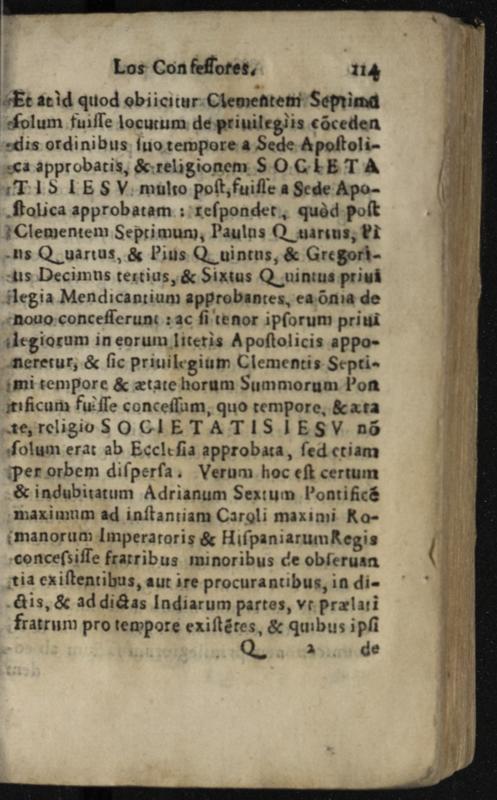 Los Confessores. 114
Et at id quod obiicitur Clementem Septimū
solum fuisse locutum de priuilegiis cōceden
dis ordinibus suo tempore a Sede Apostoli-
ca approbatis, & religionem SOCIETA
TIS IESV multo post, fuisse a Sede Apo-
stolica approbatam : respondet, quòd post
Clementem Septimum, Paulus Quartus, Pi
us Quartus, & Pius Quintus, & Gregori-
us Decimus tertius, & Sixtus Quintus priui
legia Mendicantium approbantes, ea ōnia de
nouo concesserunt : ac si tenor ipsorum priui
legiorum in eorum literis Apostolicis appo-
neretur, & sic priuilegium Clementis Septi-
mi tempore & ætate horum Summorum Pon
tificum fuisse concessum, quo tempore, & æta
te, religio SOCIETATIS IESV nō
solum erat ab Ecclesia approbata, sed etiam
per orbem dispersa. Verum hoc est certum
& indubitatum Adrianum Sextum Pontificē
maximum ad instantiam Caroli maximi Ro-
manorum Imperatoris & Hispaniarum Regis
concessisse fratribus minoribus de obseruan
tia existentibus, aut ire procurantibus, in di-
ctis, & ad dictas Indiarum partes, vt prælati
fratrum pro tempore existētes, & quibus ipsi
Q 2 de